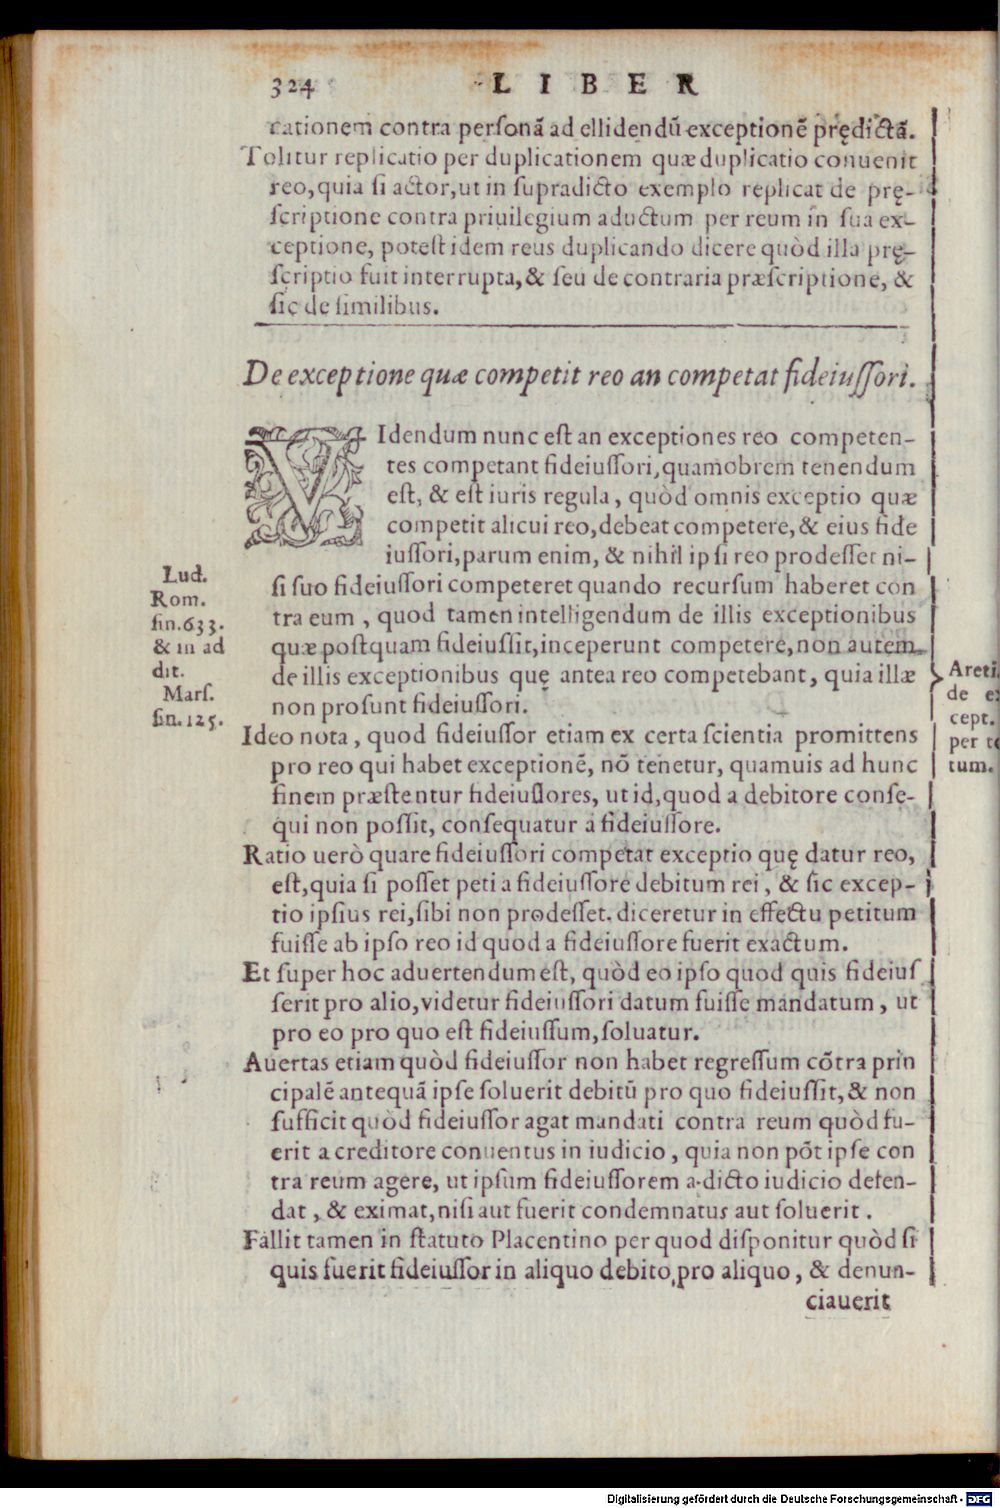 324 LIBER
cationem contra personã ad ellidendũ exceptionẽ prędictã.
Tolitur replicatio per duplicationem quæ duplicatio conuenit
reo, quia si actor, ut in supradicto exemplo replicat de prę-
scriptione contra priuilegium aductum per reum in sua ex-
ceptione, potest idem reus duplicando dicere quòd illa prę-
scriptio fuit interrupta, & seu de contraria præscriptione, &
sic de similibus.
De exceptione quæ competit reo an competat fideiussori.
VIdendum nunc est an exceptiones reo competen-
tes competant fideiussori, quamobrem tenendum
est, & est iuris regula, quòd omnis exceptio quæ
competit alicui reo, debeat competere, & eius fide
iussori, parum enim, & nihil ipsi reo prodesset ni-
si suo fideiussori competeret quando recursum haberet con
tra eum, quod tamen intelligendum de illis exceptionibus
quæ postquam fideiussit, inceperunt competere, non autem
de illis exceptionibus quę antea reo competebant, quia illæ
non prosunt fideiussori.
Lud.
Rom.
sin. 633.
& in ad
dit.
Mars.
sin. 125.
Areti.
de ex
cept.
per to
tum.
Ideo nota, quod fideiussor etiam ex certa scientia promittens
pro reo qui habet exceptionẽ, nõ tenetur, quamuis ad hunc
finem præstentur fideiussores, ut id, quod a debitore conse-
qui non possit, consequatur a fideiussore.
Ratio uerò quare fideiussori competat exceptio quę datur reo,
est, quia si posset peti a fideiussore debitum rei, & sic excep-
tio ipsius rei, sibi non prodesset. diceretur in effectu petitum
fuisse ab ipso reo id quod a fideiussore fuerit exactum.
Et super hoc aduertendum est, quòd eo ipso quod quis fideius
serit pro alio, videtur fideiussori datum fuisse mandatum, ut
pro eo pro quo est fideiussum, soluatur.
Auertas etiam quòd fideiussor non habet regressum cõtra prin
cipalẽ antequã ipse soluerit debitũ pro quo fideiussit, & non
sufficit quòd fideiussor agat mandati contra reum quòd fu-
erit a creditore conuentus in iudicio, quia non põt ipse con
tra reum agere, ut ipsum fideiussorem a dicto iudicio defen-
dat, & eximat, nisi aut fuerit condemnatus aut soluerit.
Fallit tamen in statuto Placentino per quod disponitur quòd si
quis fuerit fideiussor in aliquo debito pro aliquo, & denun-
ciauerit
Digitalisierung gefördert durch die Deutsche Forschungsgemeinschaft - DFG